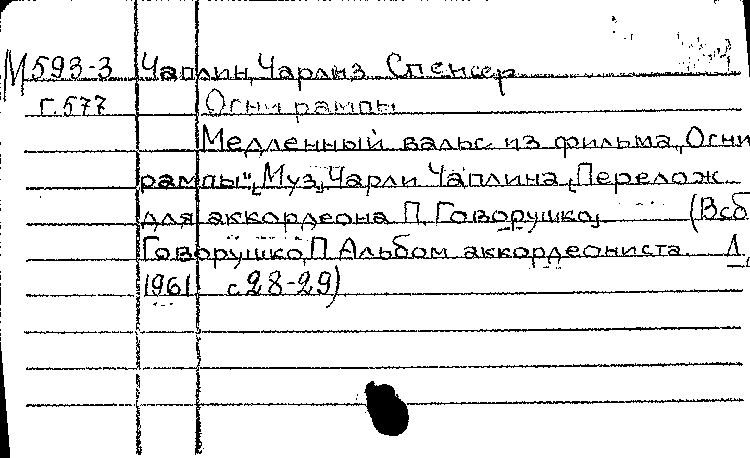 М593-3 Чаплин, Чарльз Спенсер
Г.577 Огни рампы
Медленный вальс из фильма „Огни
рампы". Муз. Чарли Чаплина. Перелож.
для аккордеона П. Говорушко. (В сб.
Говорушко, П. Альбом аккордеониста. Л.,
1961 с 28-29)